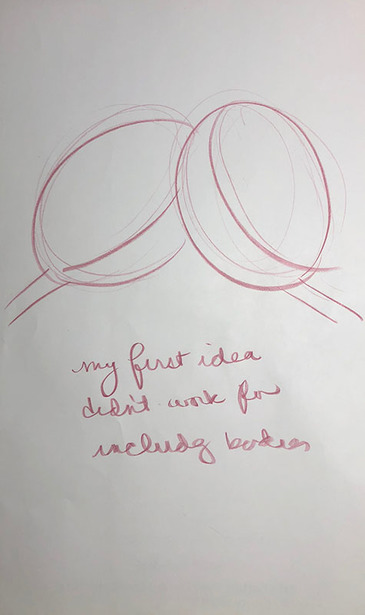 my first idea
didn't work for
includg bodies